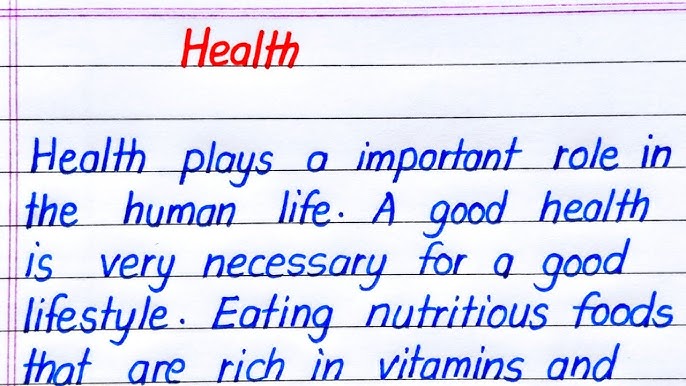 Health
Health plays a important role in
the human life. A good health
is very necessary for a good
lifestyle. Eating nutritious foods
that are rich in vitamins and